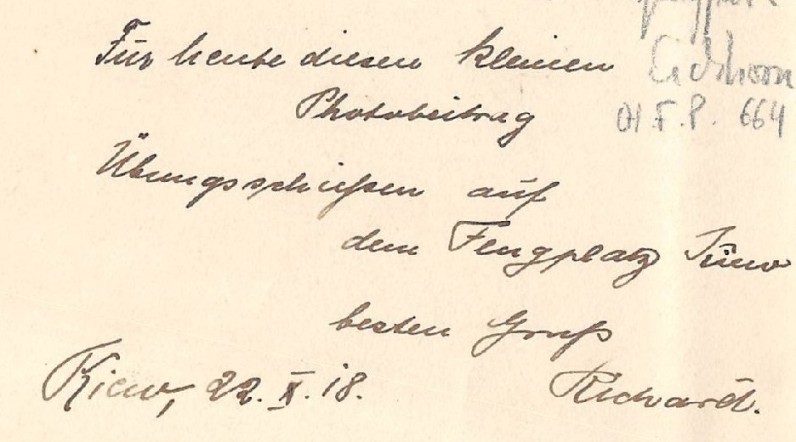 Für heute diesen kleinen
Photobeitrag
Übungsschießen auf
dem Flugplatz Kiew
besten Gruß
Kiew, 22. X. 18. Richard.
Eichhorn
F. P. 664